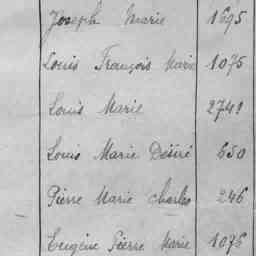 Joseph Marie 1695
Louis François Marie 1075
Louis Marie 2741
Louis Marie Désiré 650
Pierre Marie Charles 246
Eugène Pierre Marie 1076